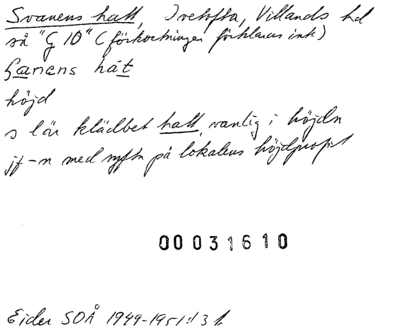 Svanens hall, Ivetofta, Villands hd
så "G 10" (förkortningen förklaras inte)
håt
höjd
s län klädbet hatt, vanlig i höjdn
jf-n med syftn på lokalens höjdprofil
00031610
Eider SOÅ 1949-1951:13 f.